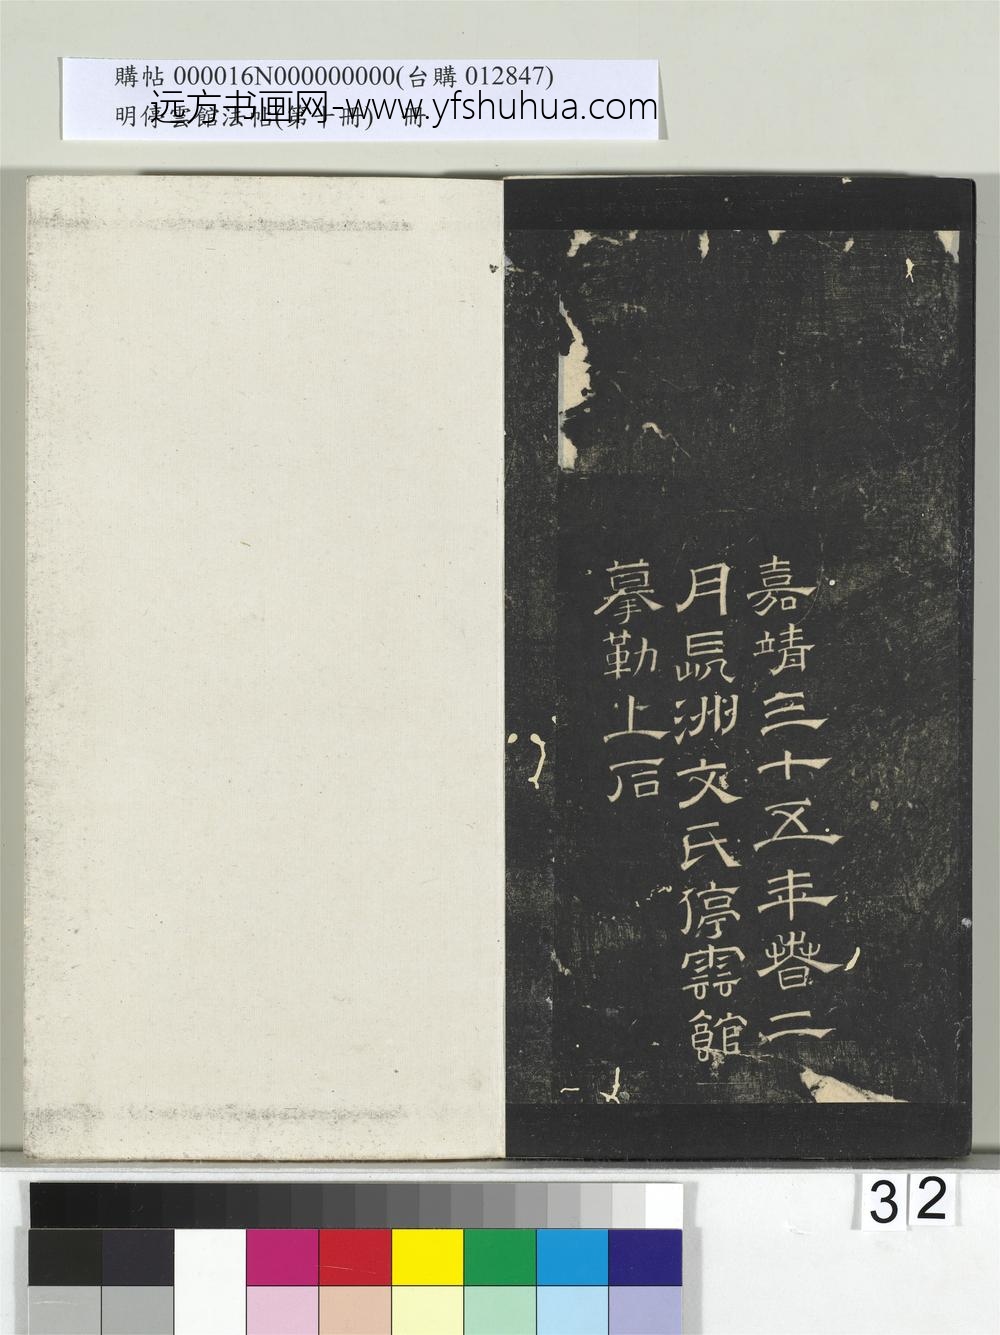 購帖 000016N000000000(台購 012847)
明停雲館法帖(第十冊) 冊
远方书画网-www.yfshuhua.com
嘉靖三十五年萅二
月長洲文氏停雲館
摹勒上石
32